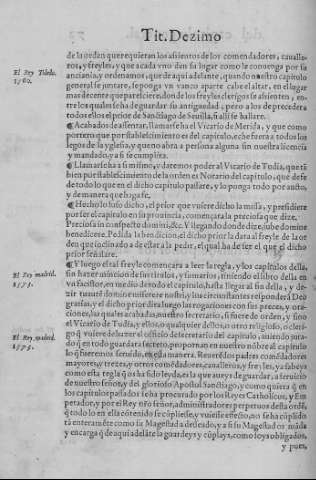 Tit. Dezimo
de la orden que requieran los asientos de los comendadores, cavalle-
ros, y freyles, y que a cada vno den su lugar como le convenga por su
El Rey Toledo. 1560.
anciania, y ordenamos, que de aqui adelante, quando nuestro capitulo
general se juntare, se ponga vn vanco aparte cabe el altar, en el lugar
mas decente que pareciere, donde los freyles clerigos se assienten, en-
tre los quales se ha de guardar su antiguedad, pero a los de precedera
todos ellos el prior de Santiago de Sevilla, si alli se hallare.
¶ Acabados de assentar, llamarse ha el Vicario de Merida, y que como
portero que por stablescimiento es del capitulo, eche fuera a todos los
legos de la yglesia, y que no abra a persona alguna sin nuestra licencia
y mandado, y a si se cumplira.
¶ Llamarse ha a si mismo, y daremos poder al Vicario de Tudia, que tã
bien por stablescimiento de la orden es Notario del capitulo, que de fe
de todo lo que en el dicho capitulo passare, y lo ponga todo por aucto,
y de manera que haga fe.
¶ Hecho lo suso dicho, el prior que vuiere dicho la missa, y presidiere
por ser el capitulo en su prouincia, començara la preciosa que dize.
Preciosa in conspectu domini, &c. Y llegando donde dize, iube domine
benedicere. Pedida la bendicion, el dicho prior la dara al freyle de la or
den que inclinado a de estar a la pedir, el qual ha de ser el que el dicho
prior señalare.
El Rey madrid. 1575.
¶ Y luego el tal freyle començara a leer la regla, y los capitulos della,
sin hazer mincion de sus titulos, y sumarios, teniendo el libro della en
vn facistor, en medio de todo el capitulo, hasta llegar al fin della, y de-
zir tu autem domine miserere nostri, y los circunstantes responderã Deo
gratias, y el dicho prior dira luego las rogaciones con sus preces, y ora-
ciones, las quales acabadas, nuestro secretario, si fuere de orden, y sino
el Vicario de Tudia, y ellos, o qualquier dellos, a otro religioso, o cleri-
El Rey madrid. 1575.
go q̃ vuiere de hazer el officio de secretario del capitulo, auiendo jura-
do q̃ en todo guardara secreto, propornan en nuestro nõbre al capitulo
lo q̃ queremos ser uido, en esta manera. Reuerẽdos padres comẽdadores
mayores, y trezes, y otros comẽdadores, cavalleros, y freyles, ya sabeys
como esta regla q̃ se ha sido leyda, es la que aueys de guardar, a seruicio
de nuestro señor, y del glorioso Apostol Sanctiago, y como quiera q̃ en
los capitulos pasados se ha procurado por los Reyes Catholicos, y Em
perador, y por el Rey nr̃o señor, administradores perpetuos desta ordẽ,
q̃ todo lo en ella cõtenido se cũpliesse, y vuiesse effecto, no se ha cũplido
tã enteramẽte como su Magestad a desseado, y a si su Magestad os mãda
y encarga q̃ de aqui a delãte la guardeys y cũplays, como soys obligados,
y pues